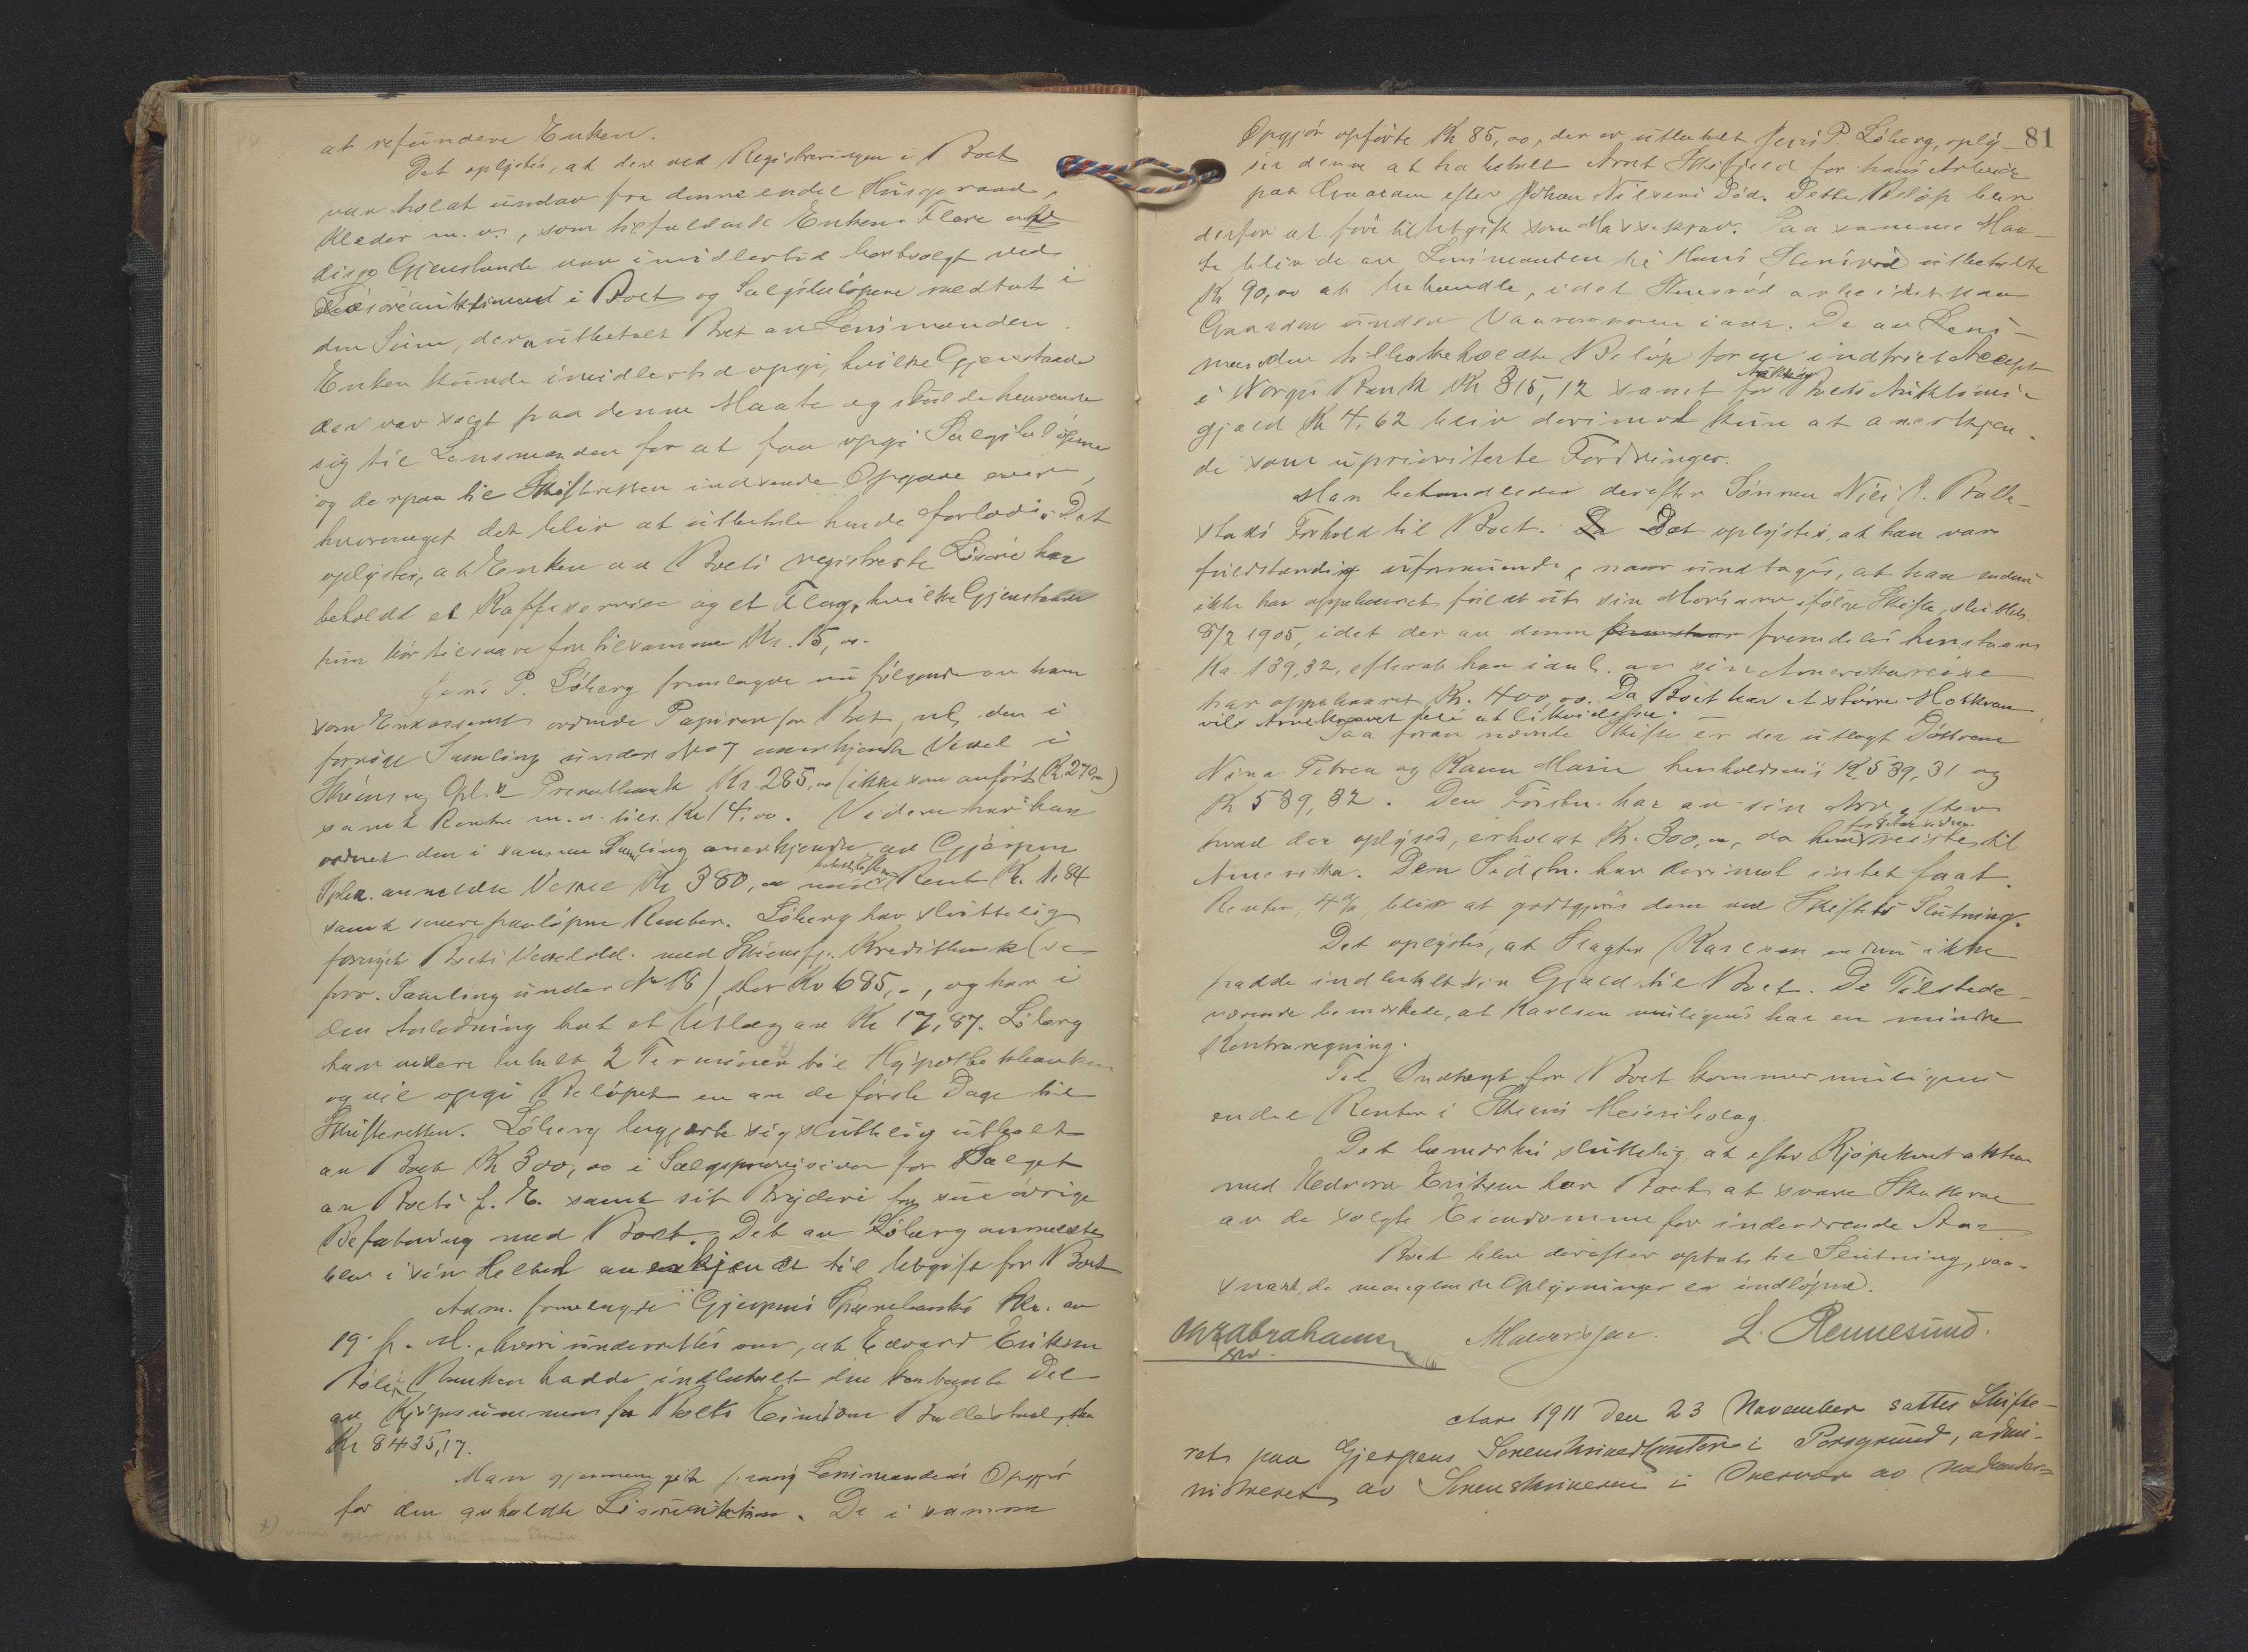 at refundere Enken.
Det oplystes, at der ved Registreringen i Boet
var holdt undav fra denne endel Husgeraad,
Klæder m. v., som tilfaldende Enken. Flere av
disse Gjenstande var imidlertid bortsolgt ved
Løsøreauktionen i Boet og Salgsbeløpene medtat i
den Sum, der er utbetalt Boet av Lensmanden.
Enken kunde imidlertid opgi, hvilke Gjenstande
der var solgt paa denne Maate og skulde henvende
sig til Lensmanden for at faa opgi Salgsbeløpene
og derpaa til Skifteretten indsende Opgave over,
hvormeget det blir at utbetale hende forlods. Det
oplystes, at Enken av Boets registrerte Løsøre har
beholdt et Kaffeservice og et Flag, hvilke Gjenstande
hun bør tilsvare for tilsammen Kr. 15,00.
Jens P. Löberg fremlagde nu følgende av ham
som Inkassator ordnede Papirer for Boet, nl. den i
forrige Samling under No 7 anerkjendte Vexel i
Skiens og Opl.s Privatbank Kr. 285,00 (ikke som anført Kr 270,00)
samt Renter m. v. tils. Kr 14,00. Videre har han
ordnet den i samme Samling anerkjendte av Gjerpens
Spbk. anmeldte Vexel Kr 380,00 med Rente Kr. 1,84
samt senere paaløpne Renter. Löberg har sluttelig
fornyet Boets Vexelobl. med Skiensfj. Kreditbank (se
forr. Samling under No 18) stor Kr 685,-, og har i
den Anledning hat et Utlæg av Kr 17,87. Löberg
har videre betalt 2 Terminer til Hypothekbanken
og vil opgi Beløpet en av de første Dage til
Skifteretten. Löberg begjærte sig sluttelig utbetalt
av Boet Kr 300,00 i Salgsprovision for Salget
av Boets f. E. samt sit Bryderi for sin øvrige
Befatning med Boet. Det av Löberg anmeldte
blev i sin Helhet anerkjendt til Utgift for Boet
Adm. fremlagde Gjerpens Sparebanks Skr. av
19 f. M., hvori underrettes om, at Edvard Eriksen
Bøle i Banken hadde indbetalt den kontante Del
av Kjøpesummen for Boets Eiendom Ballestad, stor
Kr 8435,17.
Man gjennemgik forøvrig Lensmandens Opgjør
for den avholdte Løsøreauktion. De i samme
81
Opgjør opførte Kr 85,00, der er utbetalt Jens P. Löberg, oply-
ser denne at ha betalt Arnt Skifjeld for hans Arbeide
paa Gaarden efter Johan Nilsens Død. Dette Beløp blir
derfor at føre til Utgift som Massekrav. Paa samme Maa-
te blir de av Lensmanden til Hans Stensrød utbetalte
Kr 90,00 at behandle, idet Stensrød arbeidet paa
Gaarden under Vaaronnen iaar. De av Lens-
manden tilbakeholdte Beløp for en indfriet Accept
i Norges Bank Kr 315,12 samt for Boets Auktions-
gjæld Kr 4,62 blir derimot kun at anerkjen-
de som uprioriterte Fordringer.
Man behandledes derefter Sønnen Nils J. Balle-
stads Forhold til Boet. Det oplystes, at han var
fuldstændig uformuende, naar undtages, at han endnu
ikke har oppebaaret fuldt ut sin Morsarv ifølge Skifte, sluttet
8/2 1905, idet der av denne fremdeles henstaar
Kr. 139,32, efterat han i anl. av sin Amerikareise
har oppebaaret Kr. 400,00. Da Boet har et større Motkrav
vil Arvekravet bli at likvidere.
Paa foran nævnte Skifte er der utlagt Døttrene
Nina Petrea og Karen Marie henholdsvis Kr 539,31 og
Kr 539,32. Den Førstn. har av sin Arv, efter
hvad der oplyses, erholdt Kr. 300,00, da hun reiste til
Amerika. Den Sidstn. har derimot intet faat.
Renter, 4%, blir at godtgjøre dem ved Skiftets Slutning.
Det oplystes, at Slagter Karlsen endnu ikke
hadde indbetalt sin Gjæld til Boet. De Tilstede-
værende bemærkede, at Karlsen muligens har en mindre
Kontraregning.
Til Indtægt for Boet kommer muligens
endel Renter i Skiens Meieribolag.
Det bemærkes sluttelig, at efter Kjøpekontrakten
med Edvard Eriksen bør Boet at svare Skatterne
av de solgte Eiendomme for inderværende Aar
Boet blev derefter optat til Slutning, saa-
snart de manglende Oplysninger er indløpne.
Abrahamsen Mauritzen. L. Rennesund.
Aar 1911 den 23 November sattes Skifte-
ret paa Gjerpens Sorenskriverkontor i Porsgrund, admi-
nistreret av Sorenskriveren i Overvær av nedunder-